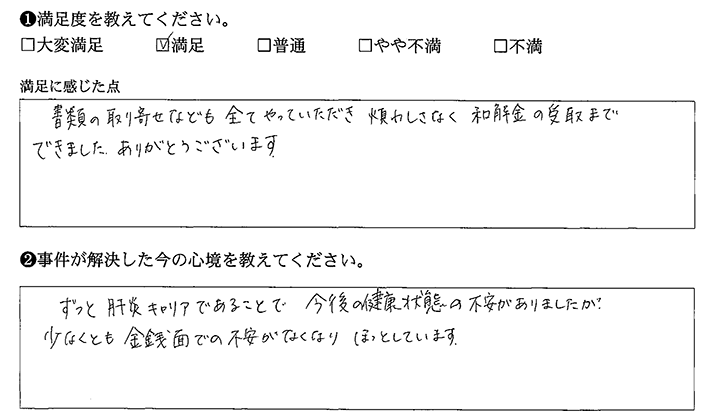 ❶満足度を教えてください。
□大変満足 ☑満足 □普通 □やや不満 □不満
満足に感じた点
書類の取り寄せなども 全てやっていただき 煩わしさなく 和解金の受取まで
できました。ありがとうございます。
❷事件が解決した今の心境を教えてください。
ずっと 肝炎キャリアであることで 今後の健康状態の不安がありましたが、
少なくとも 金銭面での不安がなくなり ほっとしています。